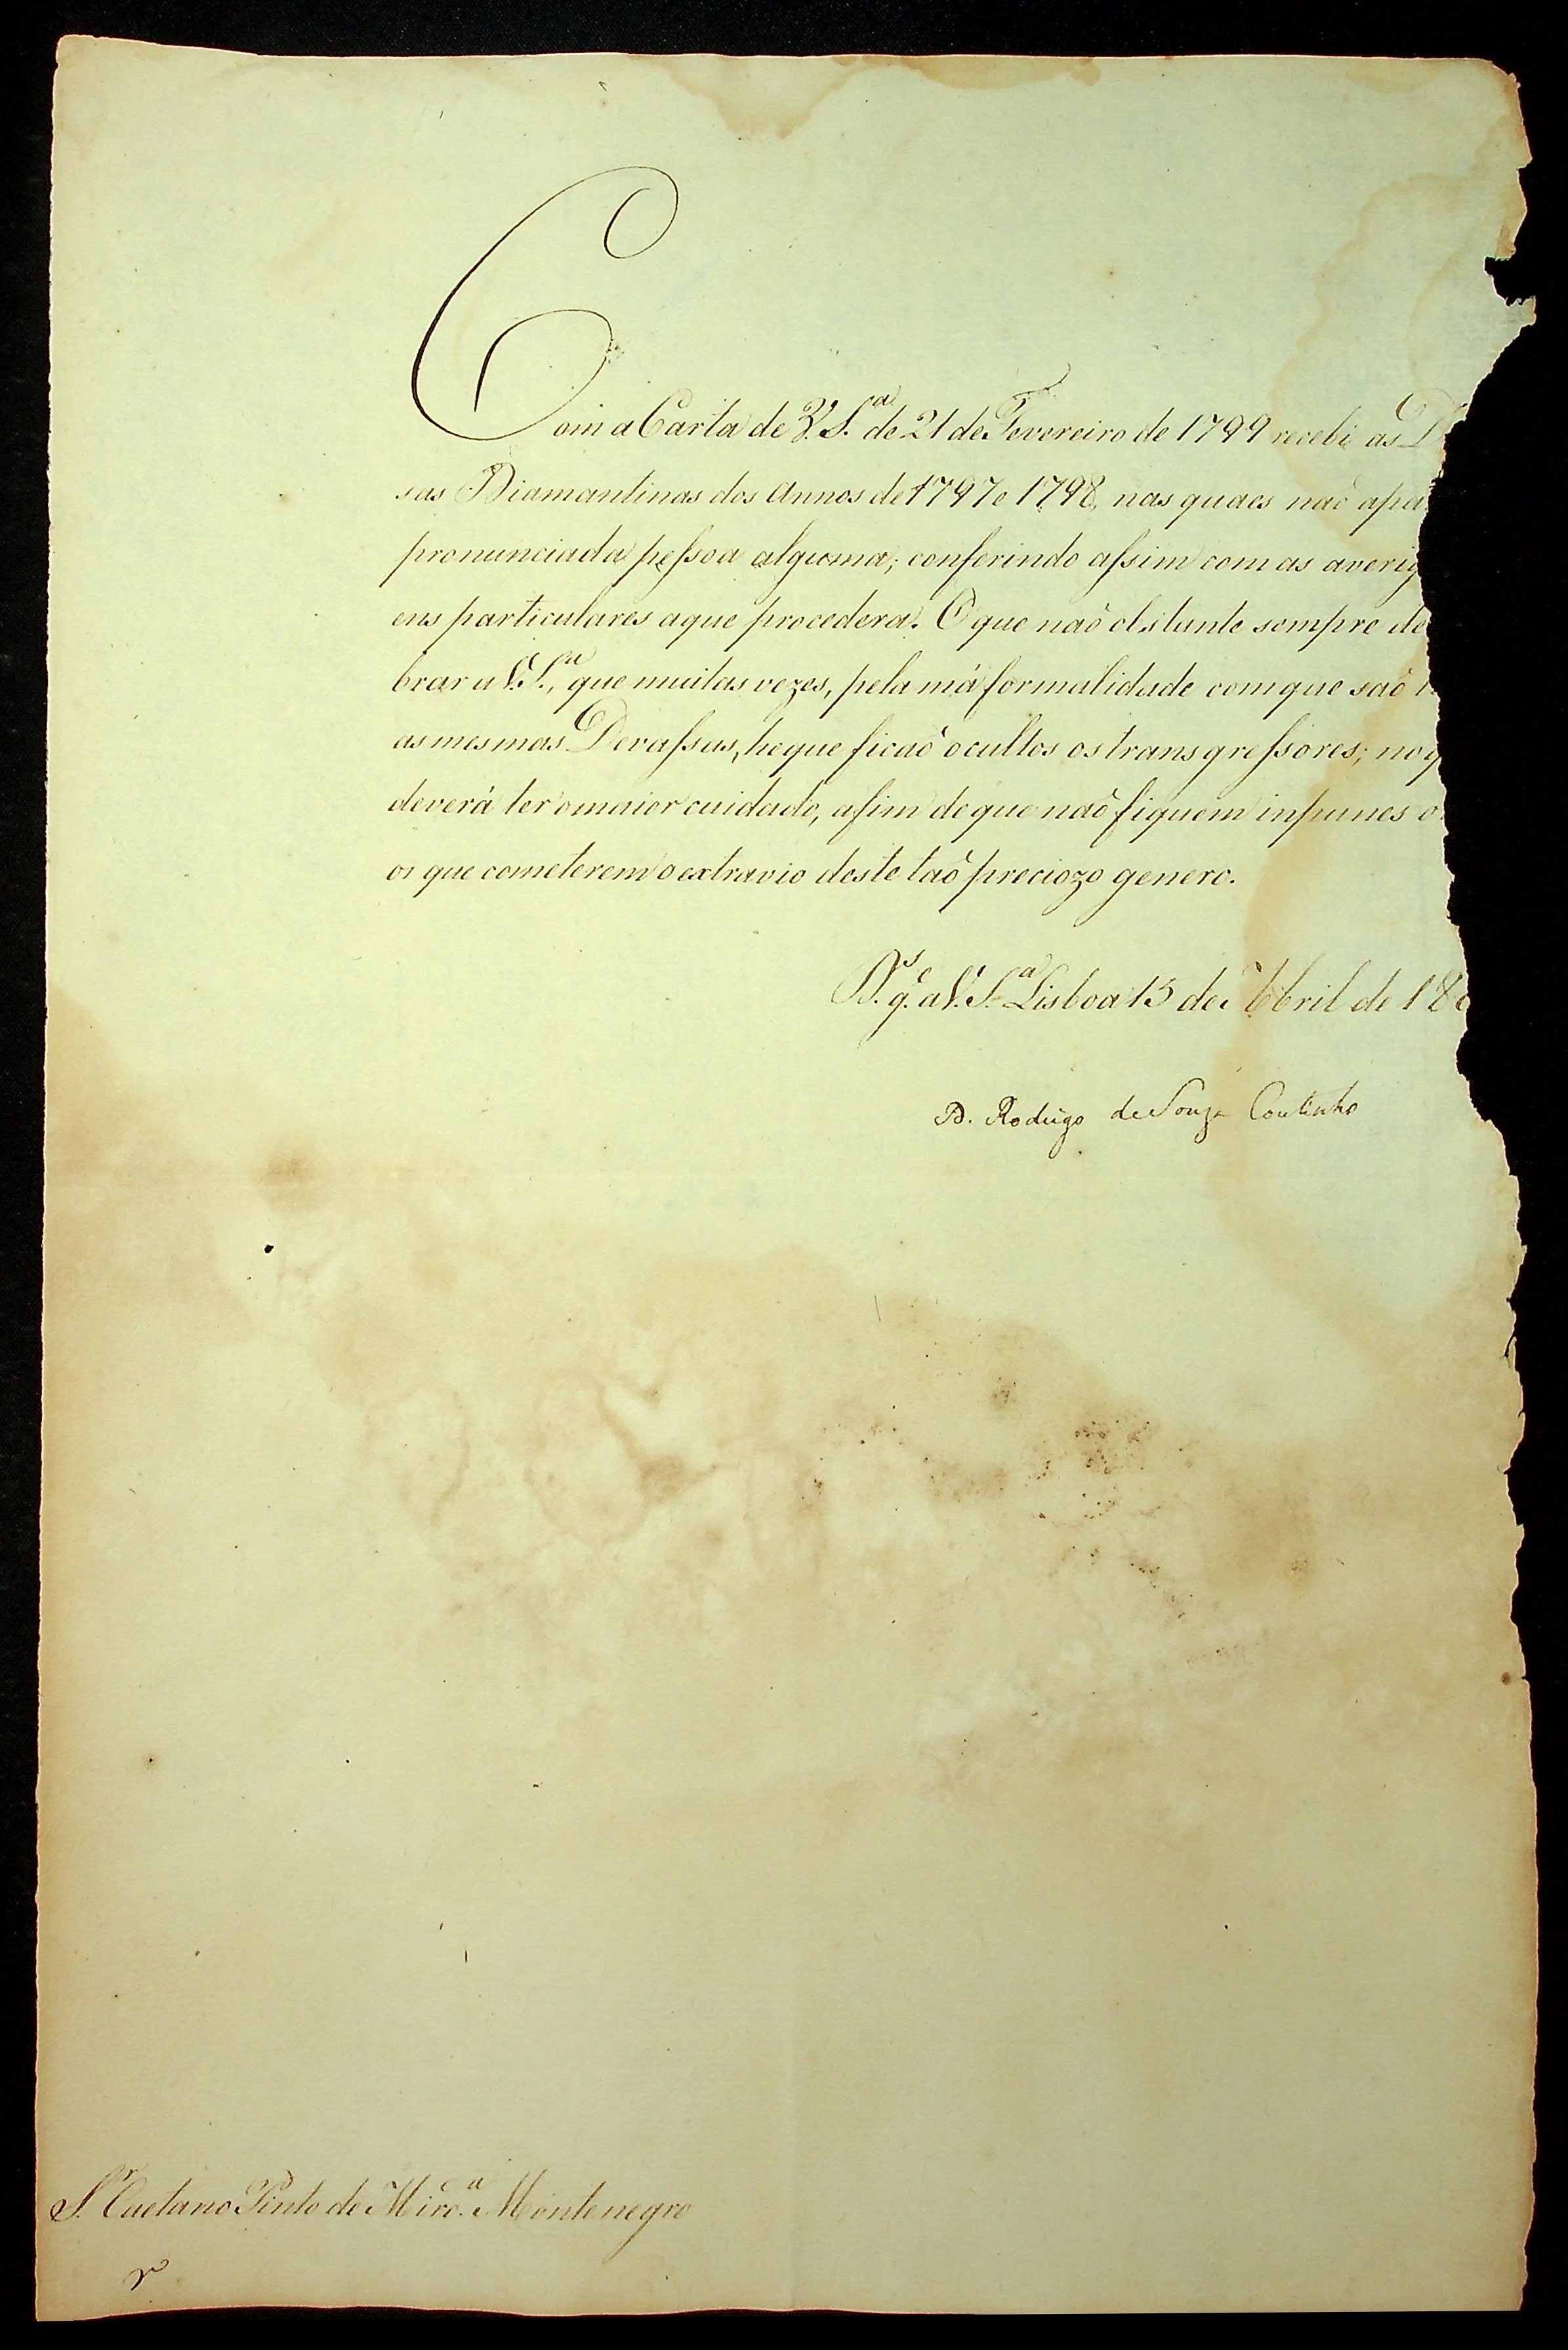 Com a Carta de V. S.ª de 21 de Fevereiro de 1799 recebi as D
sas Diamantinas dos Annos de 1797 e 1798, nas quaes naõ apa
pronunciada pessoa alguma; conferindo assim com as averig
ens particulares a que procedera. O que naõ obstante sempre de
brar a V. S.ª, que muitas vezes, pela má formalidade com que saõ
as mesmas Devassas, he que ficaõ ocultos os transgressores; no q
deverá ter o maior cuidado, afim de que naõ fiquem inpunes
os que cometerem o extravio deste taõ preciozo genero.
D.s g.e a V. S.ª Lisboa 15 de Abril de 18
D. Rodrigo de Souza Coutinho
S.r Caetano Pinto de Mird.ª Montenegro